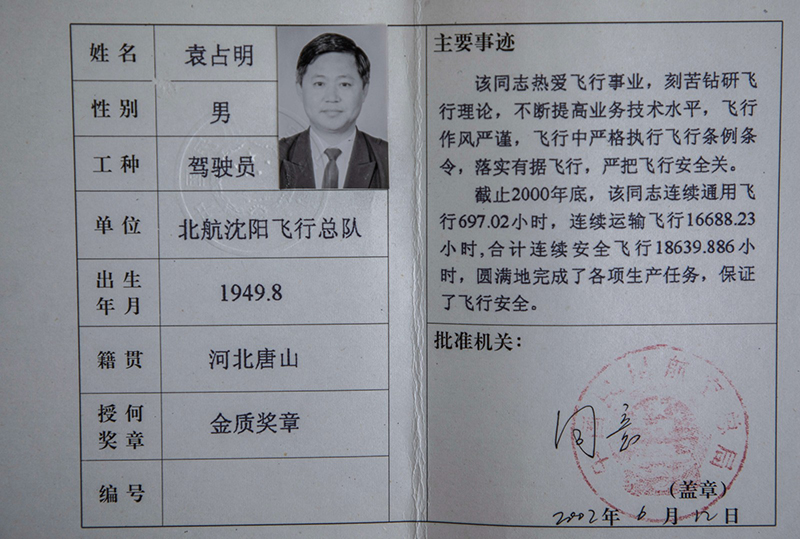 姓名 袁占明
性别 男
工种 驾驶员
单位 北航沈阳飞行总队
出生
年月 1949.8
籍贯 河北唐山
授何
奖章 金质奖章
编号
主要事迹
该同志热爱飞行事业，刻苦钻研飞
行理论，不断提高业务技术水平，飞行
作风严谨，飞行中严格执行飞行条例条
令，落实有据飞行，严把飞行安全关。
截止2000年底，该同志连续通用飞
行697.02小时，连续运输飞行16688.23
小时,合计连续安全飞行18639.886小
时，圆满地完成了各项生产任务，保证
了飞行安全。
批准机关：
(盖章)
2002年 6 月 12 日